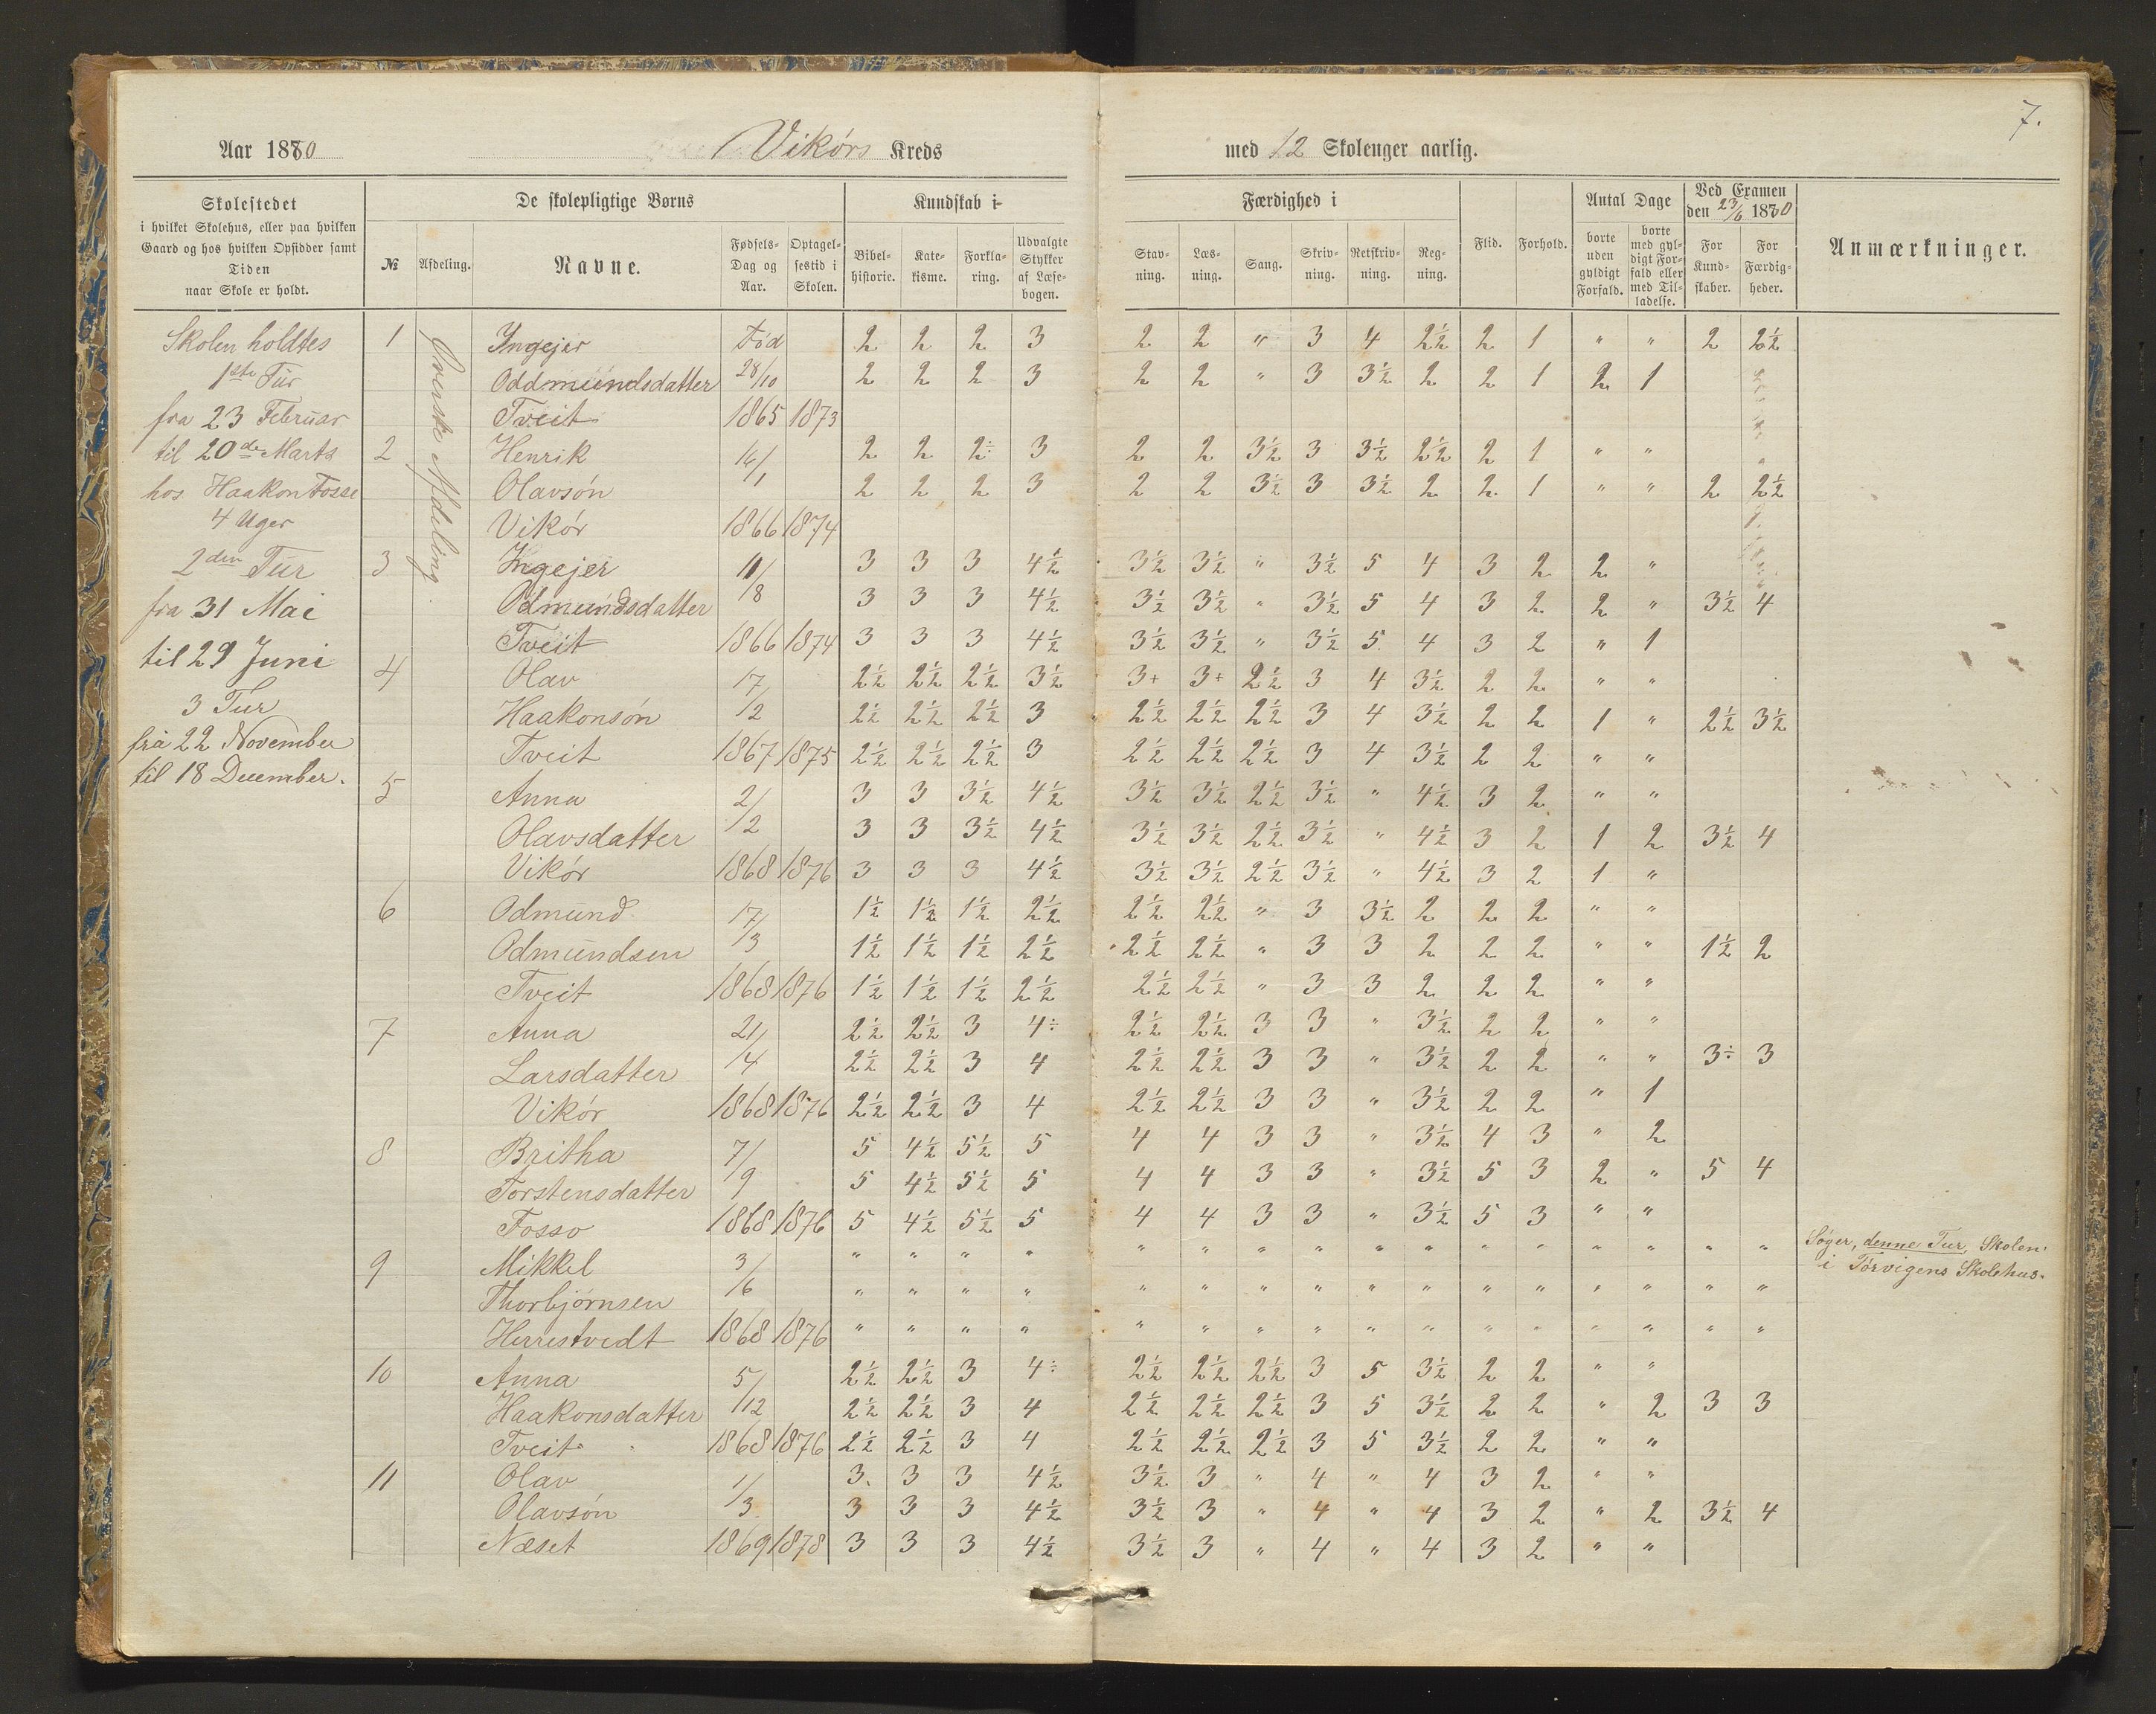 7.
Aar 1880 Vikörs Kreds med 12 Skoleuger aarlig.
Skolestedet
i hvilket Skolehus, eller paa hvilken
Gaard og hos hvilken Opsidder samt
Tiden
naar Skole er holdt.
De skolepligtige Børns
№ Afdeling. Navne. Fødsels-Dag og Aar. Optagelsestid i Skolen.
Kundskab i
Bibelhistorie. Katekisme. Forklaring. Udvalgte Stykker af Læsebogen.
Færdighed i
Stavning. Læsning. Sang. Skrivning. Retskrivning. Regning.
Flid. Forhold.
Antal Dage
borte uden gyldigt Forfald. borte med gyldigt Forfald eller med Tilladelse.
Ved Examen
den 23/6 1880
For Kundskaber. For Færdigheder.
Anmærkninger.
Skolen holdtes
1ste Tür
fra 23 Februar
til 20de Marts
hos Haakon Fosse
4 Uger
2den Tur
fra 31 Mai
til 29 Juni
3 Tur
fra 22 November
til 18 December.
Øverste Afdeling
1 Ingejer Fød 2 2 2 3 2 2 " 3 4 2½ 2 1 " " 2 2½
Oddmundsdatter 28/10 2 2 2 3 2 2 " 3 3½ 2 2 1 2 1
Tveit 1865 1873
2 Henrik 14/1 2 2 2÷ 3 2 2 3½ 3 3½ 2½ 2 1 " "
Olavsón 2 2 2 3 2 2 3½ 3 3½ 2 2 1 " " 2 2½
Vikór 1866 1874
3 Ingejer 11/8 3 3 3 4½ 3½ 3½ " 3½ 5 4 3 2 2 "
Odmundsdatter 3 3 3 4½ 3½ 3½ " 3½ 5 4 3 2 2 " 3½ 4
Tveit 1866 1874 3 3 3 4½ 3½ 3½ " 3½ 5 4 3 2 " 1
4 Olav 17/2 2½ 2½ 2½ 3½ 3+ 3+ 2½ 3 4 3½ 2 2 " "
Haakonsón 2½ 2½ 2½ 3 2½ 2½ 2½ 3 4 3½ 2 2 1 " 2½ 3½
Tveit 1867 1875 2½ 2½ 2½ 3 2½ 2½ 2½ 3 4 3½ 2 2 " "
5 Anna 2/2 3 3 3½ 4½ 3½ 3½ 2½ 3½ " 4½ 3 2 " "
Olavsdatter 3 3 3½ 4½ 3½ 3½ 2½ 3½ " 4½ 3 2 1 2 3½ 4
Vikór 1868 1876 3 3 3 4½ 3½ 3½ 2½ 3½ " 4½ 3 2 1 "
6 Odmund 17/3 1½ 1½ 1½ 2½ 2½ 2½ " 3 3½ 2 2 2 " "
Odmundsen 1½ 1½ 1½ 2½ 2½ 2½ " 3 3 2 2 2 " " 1½ 2
Tveit 1868 1876 1½ 1½ 1½ 2½ 2½ 2½ " 3 3 2 2 2 " "
7 Anna 21/4 2½ 2½ 3 4÷ 2½ 2½ 3 3 " 3½ 2 2 " "
Larsdatter 2½ 2½ 3 4 2½ 2½ 3 3 " 3½ 2 2 " " 3÷ 3
Vikór 1868 1876 2½ 2½ 3 4 2½ 2½ 3 3 " 3½ 2 2 " 1
8 Britha 7/9 5 4½ 5½ 5 4 4 3 3 " 3½ 4 3 " 2
Torstensdatter 5 4½ 5½ 5 4 4 3 3 " 3½ 5 3 2 " 5 4
Fosso 1868 1876 5 4½ 5½ 5 4 4 3 3 " 3½ 5 3 " "
9 Mikkel 3/6 " " " " " " " " " " " " " " " " Söger, denne Tur, Skolen
Thorbjörnsen " " " " " " " " " " " " " " " " i Törvigens Skolehus.
Herrestvedt 1868 1876 " " " " " " " " " " " " " " " "
10 Anna 5/12 2½ 2½ 3 4÷ 2½ 2½ 2½ 3 5 3½ 2 2 " "
Haakonsdatter 2½ 2½ 3 4 2½ 2½ 2½ 3 5 3½ 2 2 " 2 3 3
Tveit 1868 1876 2½ 2½ 3 4 2½ 2½ 2½ 3 5 3½ 2 2 " "
11 Olav 1/3 3 3 3 4½ 3½ 3 " 4 " 4 3 2 " "
Olavsón 3 3 3 4½ 3½ 3 " 4 " 4 3 2 " 2 3½ 4
Næset 1869 1878 3 3 3 4½ 3½ 3 " 4 " 4 3 2 " "